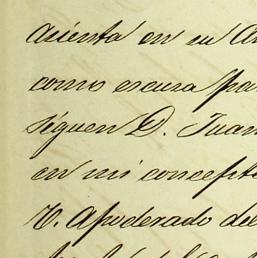 asienta en su
como escusa pa
siguen D. Juan
en mi concepto
V. Apoderado del